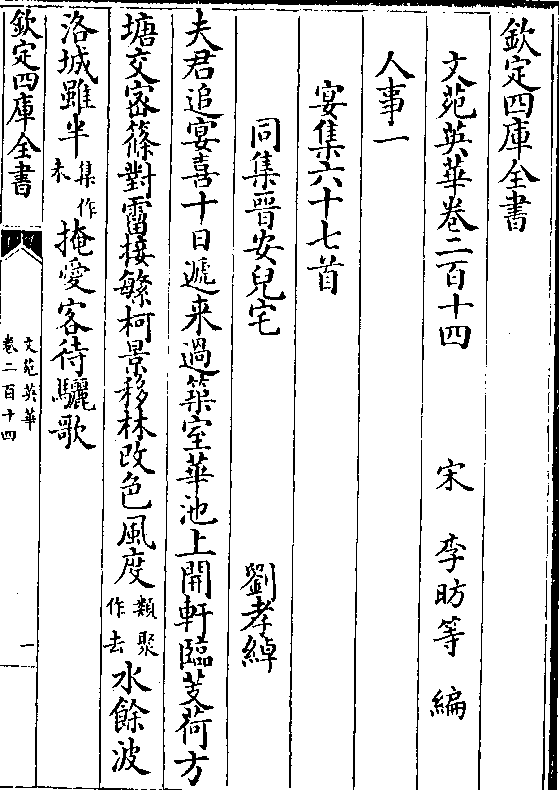 欽定四庫全書
文苑英華卷二百十四　宋　李昉等　編
人事一
宴集六十七首
同集晉安兒宅　劉孝綽
夫君追宴喜十日遞来過築室華池上開軒臨芰荷方
塘交宻篠對霤接繁柯景移林改色風度類聚作去水餘波
洛城雖半集作未掩愛客待驪歌
欽定四庫全書
文苑英華
卷二百十四
一